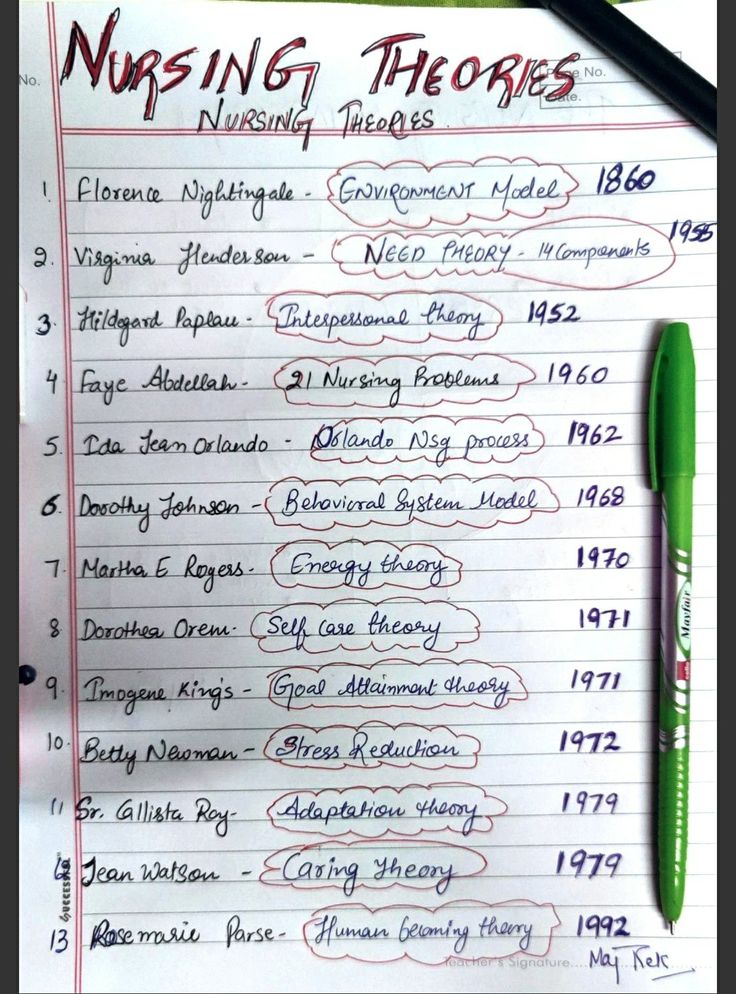 No.
NURSING THEORIES
Page No.
Date.
NURSING THEORIES.
1. Florence Nightingale - ENVIRONMENT Model 1860
2. Virginia Henderson - NEED THEORY - 14 Components 1955
3. Hildegard Paplau - Interpersonal theory 1952
4 Faye Abdellah - 21 Nursing Problems 1960
5. Ida Jean Orlando - Orlando Nsg process 1962
6. Dorothy Johnson - Behavioral System Model 1968
7. Martha E Rogers - Energy theory 1970
8 Dorothea Orem - Self care theory 1971
9. Imogene King's - Goal Attainment theory 1971
10. Betty Newman - Stress Reduction 1972
11 Sr. Callista Roy - Adaptation theory 1979
Jean Watson - Caring Theory 1979
13 Rosemarie Parse - Human becoming theory 1992
Teacher's Signature
Maj Kek
Mayfair
cello